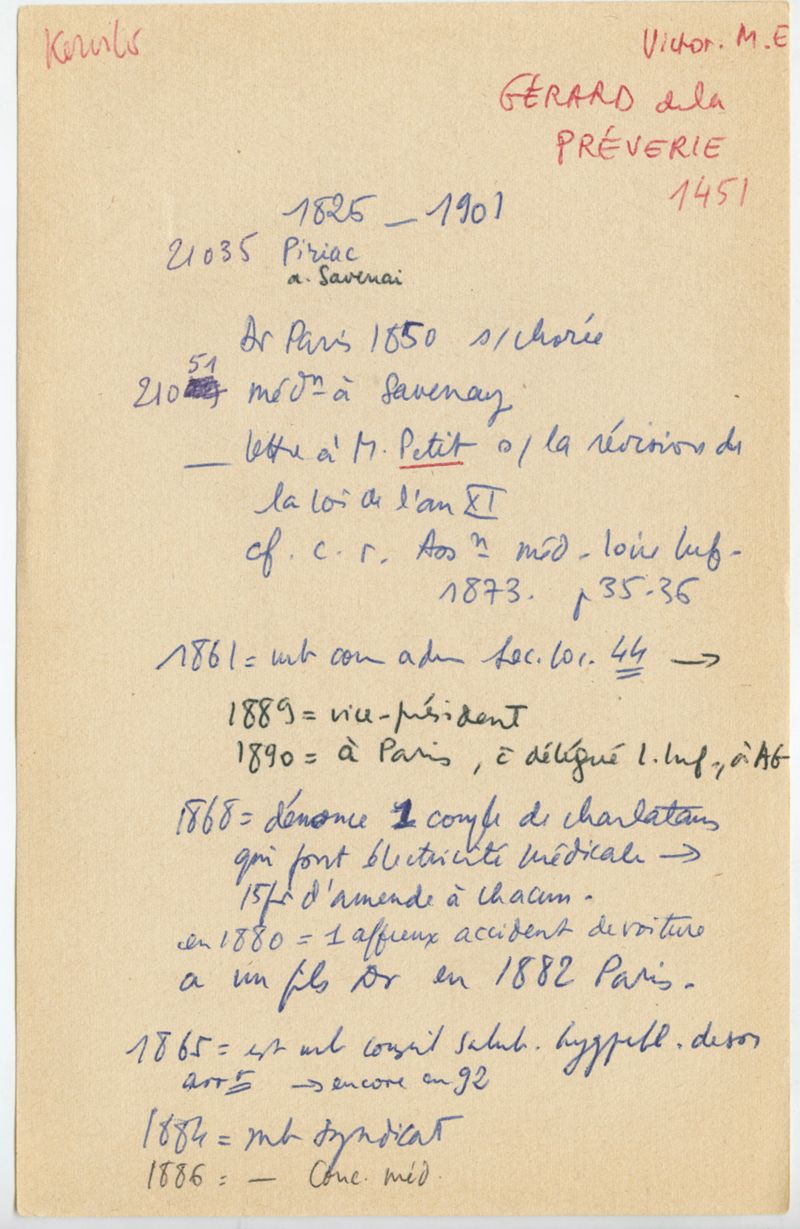 Kerviler
Victor. M. E
GÉRARD de la
PRÉVERIE
1451
1825 _ 1901
21035 Piriac
a. Savenai
Dr Paris 1850 s/chorée
51
210 médn à Savenay
_ lettre à M. Petit s/ la révision de
la loi de l'an XI
cf. c. r. Assn méd. loire Inf.
1873. p 35-36
1861 = mb com adm Soc. loc. 44 →
1889 = vice-président
1890 = à Paris, c délégué L. Inf., à AG
1868 = dénonce 1 couple de charlatans
qui font électricité médicale →
15fr d'amende à chacun.
en 1880 = 1 affreux accident de voiture
a un fils Dr en 1882 Paris.
1865 = est mb conseil salub. hyg publ. de son
arrt → encore en 92
1884 = mb syndicat
1886 = — Conc. méd.